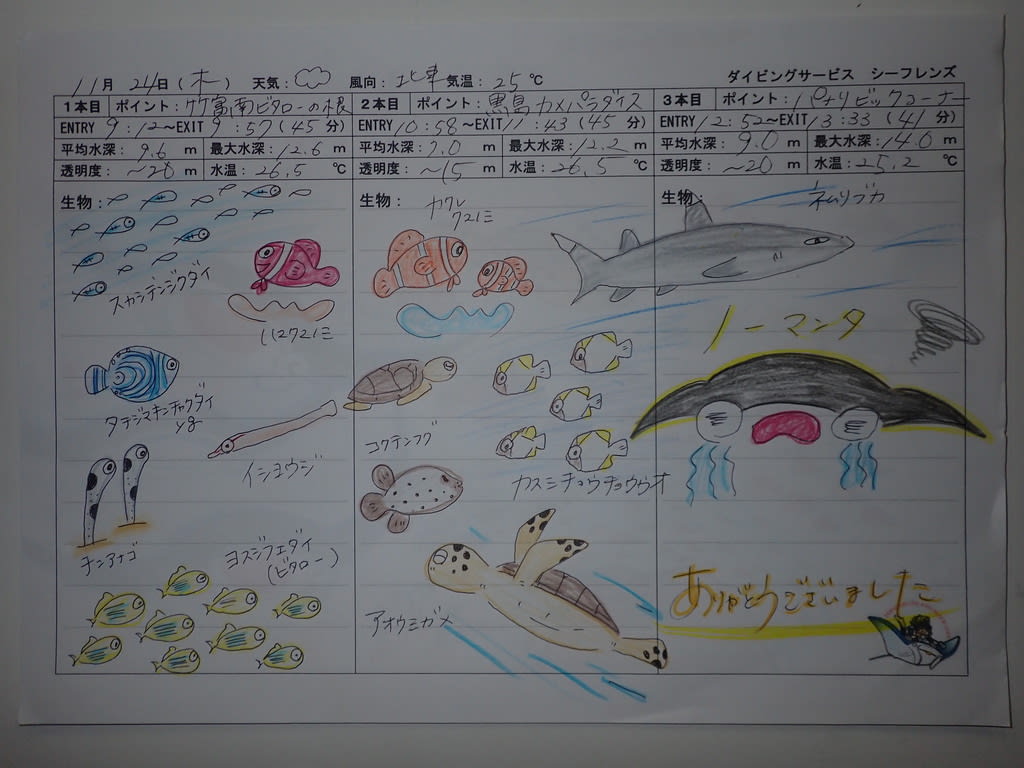 11月 24日(木) 天気: 風向: 北東 気温: 25 ℃ ダイビングサービス シーフレンズ
1本目 ポイント: 竹富南ビタローの根 2本目 ポイント: 黒島カメパラダイス 3本目 ポイント: パナリビッグコーナー
ENTRY 9:12～EXIT 9:57(45分) ENTRY 10:58～EXIT 11:43(45分) ENTRY 12:52～EXIT 13:33(41分)
平均水深: 9.6 m 最大水深: 12.6 m 平均水深: 7.0 m 最大水深: 12.2 m 平均水深: 9.0 m 最大水深: 14.0 m
透明度: ～20 m 水温: 26.5 ℃ 透明度: ～15 m 水温: 26.5 ℃ 透明度: ～20 m 水温: 25.2 ℃
生物:
スカシテンジクダイ
ハマクマノミ
タテジマキンチャクダイ
yg
イシヨウジ
チンアナゴ
ヨスジフエダイ
(ビタロー)
生物:
カクレ
クマノミ
コクテンフグ
カスミチョウチョウウオ
アオウミガメ
生物:
ネムリブカ
ノーマンタ
ありがとうございました